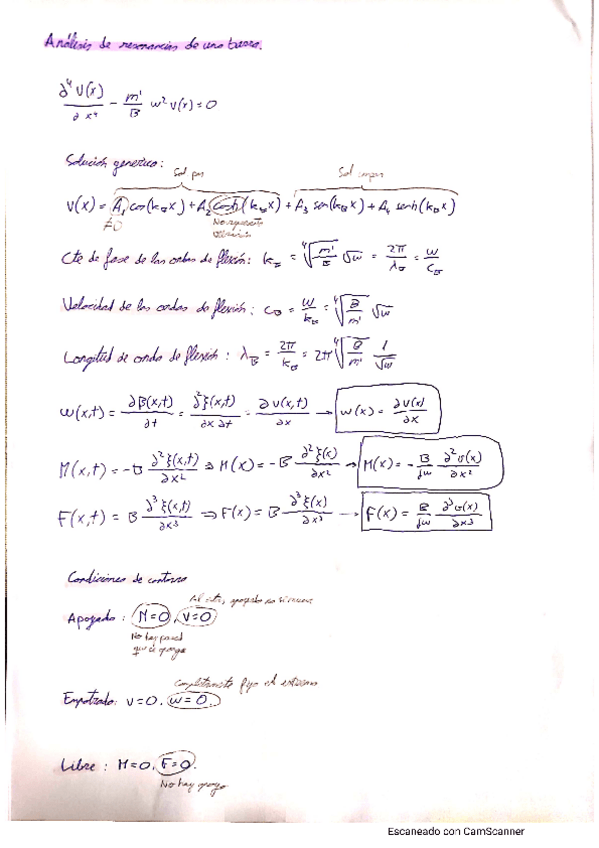 Análisis de resonancias de una barra.
∂⁴v(x)/∂x⁴ − m'/B ω² v(x) = 0
Solución generica:
Sol par Sol impar
v(x) = A₁ cos(k_B x) + A₂ cosh(k_B x) + A₃ sen(k_B x) + A₄ senh(k_B x)
≠0 No representa
Cte de fase de las ondas de flexión: k_B = ⁴√(m'/B) √ω = 2π/λ_B = ω/c_B
Velocidad de las ondas de flexión: c_B = ω/k_B = ⁴√(B/m') √ω
Longitud de onda de flexión: λ_B = 2π/k_B = 2π ⁴√(B/m') 1/√ω
w(x,t) = ∂β(x,t)/∂t = ∂²ξ(x,t)/∂x∂t = ∂v(x,t)/∂x → w(x) = ∂v(x)/∂x
M(x,t) = −B ∂²ξ(x,t)/∂x² ⇒ M(x) = −B ∂²ξ(x)/∂x² → M(x) = − B/jω ∂²v(x)/∂x²
F(x,t) = B ∂³ξ(x,t)/∂x³ ⇒ F(x) = B ∂³ξ(x)/∂x³ → F(x) = B/jω ∂³v(x)/∂x³
Condiciones de contorno
Al estar apoyado no se mueve
Apoyado: M=0, v=0
No hay pared
que se oponga
completamente fijo el extremo
Empotrado: v=0, w=0
Libre: M=0, F=0.
No hay apoyo
Escaneado con CamScanner